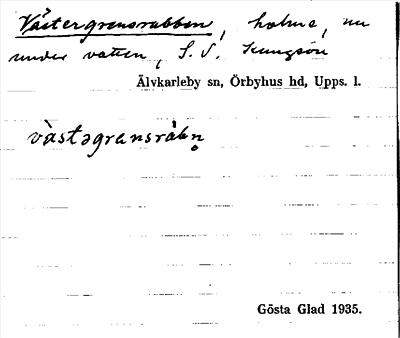 Västergrensrabben, holme, nu
under vatten, S. S. Kungsön
Älvkarleby sn, Örbyhus hd, Upps. l.
västəgrənsràbn̥
Gösta Glad 1935.